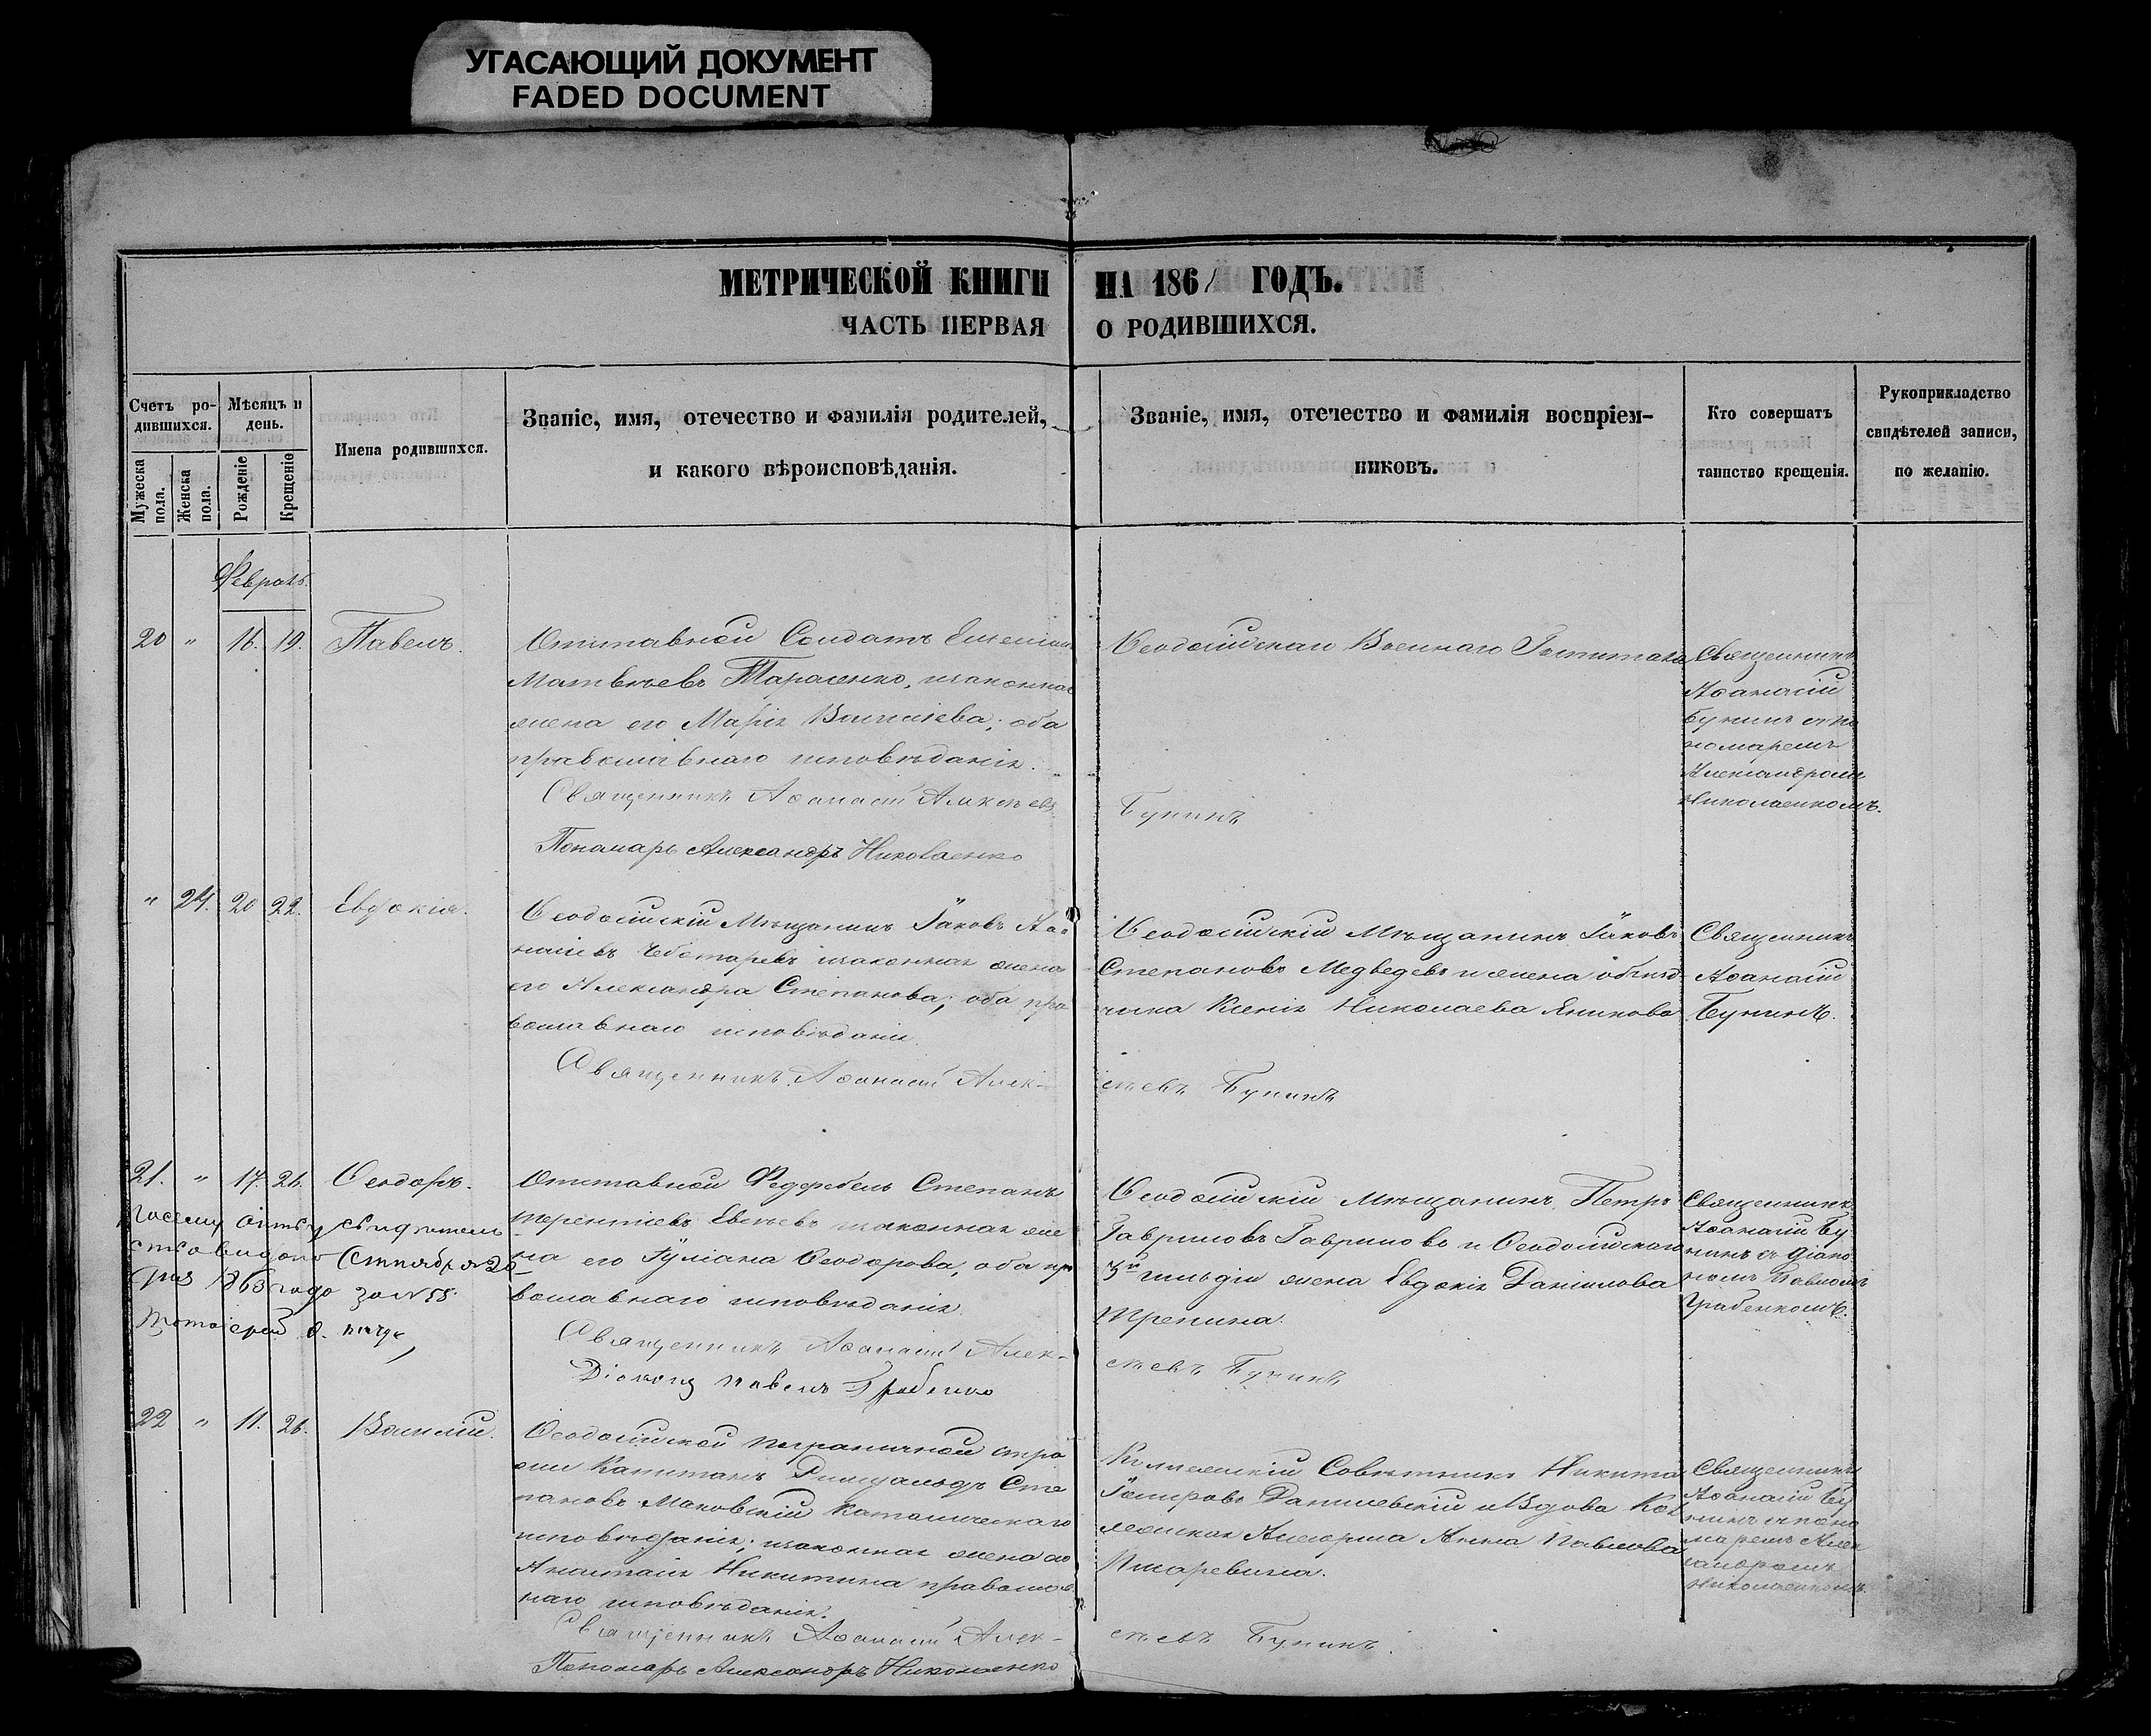 УГАСАЮЩИЙ ДОКУМЕНТ
FADED DOCUMENT
МЕТРИЧЕСКОЙ КНИГИ НА 1861 ГОДЪ.
ЧАСТЬ ПЕРВАЯ О РОДИВШИХСЯ.
Счетъ ро-
дившихся.
Мужеска
пола.
Женска
пола.
Мѣсяцъ и
день.
Рожденіе
Крещеніе
Имена родившихся.
Званіе, имя, отечество и фамилія родителей,
и какого вѣроисповѣданія.
Званіе, имя, отечество и фамилія воспріем-
никовъ.
Кто совершатъ
таинство крещенія.
Рукоприкладство
свидѣтелей записи,
по желанію.
Февраль.
20 " 16. 19. Павелъ.
Отставной Солдатъ
Матвѣевъ Тарасенко, и законная
жена его Марія Васильева; оба
православнаго исповѣданія.
Священникъ Аѳанасій Алексѣевъ
Пономарь Александръ Николаенко
Ѳеодосійскаго Военнаго Госпиталя
Бунинъ
Священникъ
Аѳанасій
Бунинъ съ по
номаремъ
Александромъ
Николаенкомъ.
" 24. 20 22. Евдокія.
Ѳеодосійскій Мѣщанинъ Іаковъ Аѳа
насіевъ Чеботаревъ и законная жена
его Александра Степанова; оба пра
вославнаго исповѣданія.
Священникъ Аѳанасій Алек-
Ѳеодосійскій Мѣщанинъ Іаковъ
Степановъ Медведевъ и жена объѣзд
чика Ксенія Николаева
сѣевъ Бунинъ
Священникъ
Аѳанасій
Бунинъ.
21. " 17. 26. Ѳеодоръ.
По сему акту свидѣтель
ство видано Сентября 20
дня 1863 года за N 58.
Протоіерей
Отставной Федфебель Степанъ
Терентіевъ Евсѣевъ и законная же
на его Іуліана Ѳеодорова, оба пра
вославнаго исповѣданія.
Священникъ Аѳанасій Алек-
Діаконъ Павелъ Грабенко
Ѳеодосійскій Мѣщанинъ Петръ
Гавриловъ Гавриловъ и Ѳеодосійскаго
3й гильдіи жена Евдокія Даніилова
Трепина.
сѣевъ Бунинъ
Священникъ
Аѳанасій Бу
нинъ съ Діако
номъ Павломъ
Грабенкомъ.
22 " 11. 26. Василій.
Ѳеодосійской пограничной стра
жи Капитанъ Ромуальдъ Сте
пановъ Маковскій Католическаго
исповѣданія; и законная жена его
Анастасія Никитина православ
наго исповѣданія.
Священникъ Аѳанасій Алек-
Пономарь Александръ Николаенко
Коллежскій Совѣтникъ Никита
Данилевскій и Вдова Кол
лежская Анна Павлова
Писаревича.
сѣевъ Бунинъ.
Священникъ
Аѳанасій Бу
нинъ съ поно
маремъ Алек
сандромъ
Николаенкомъ.